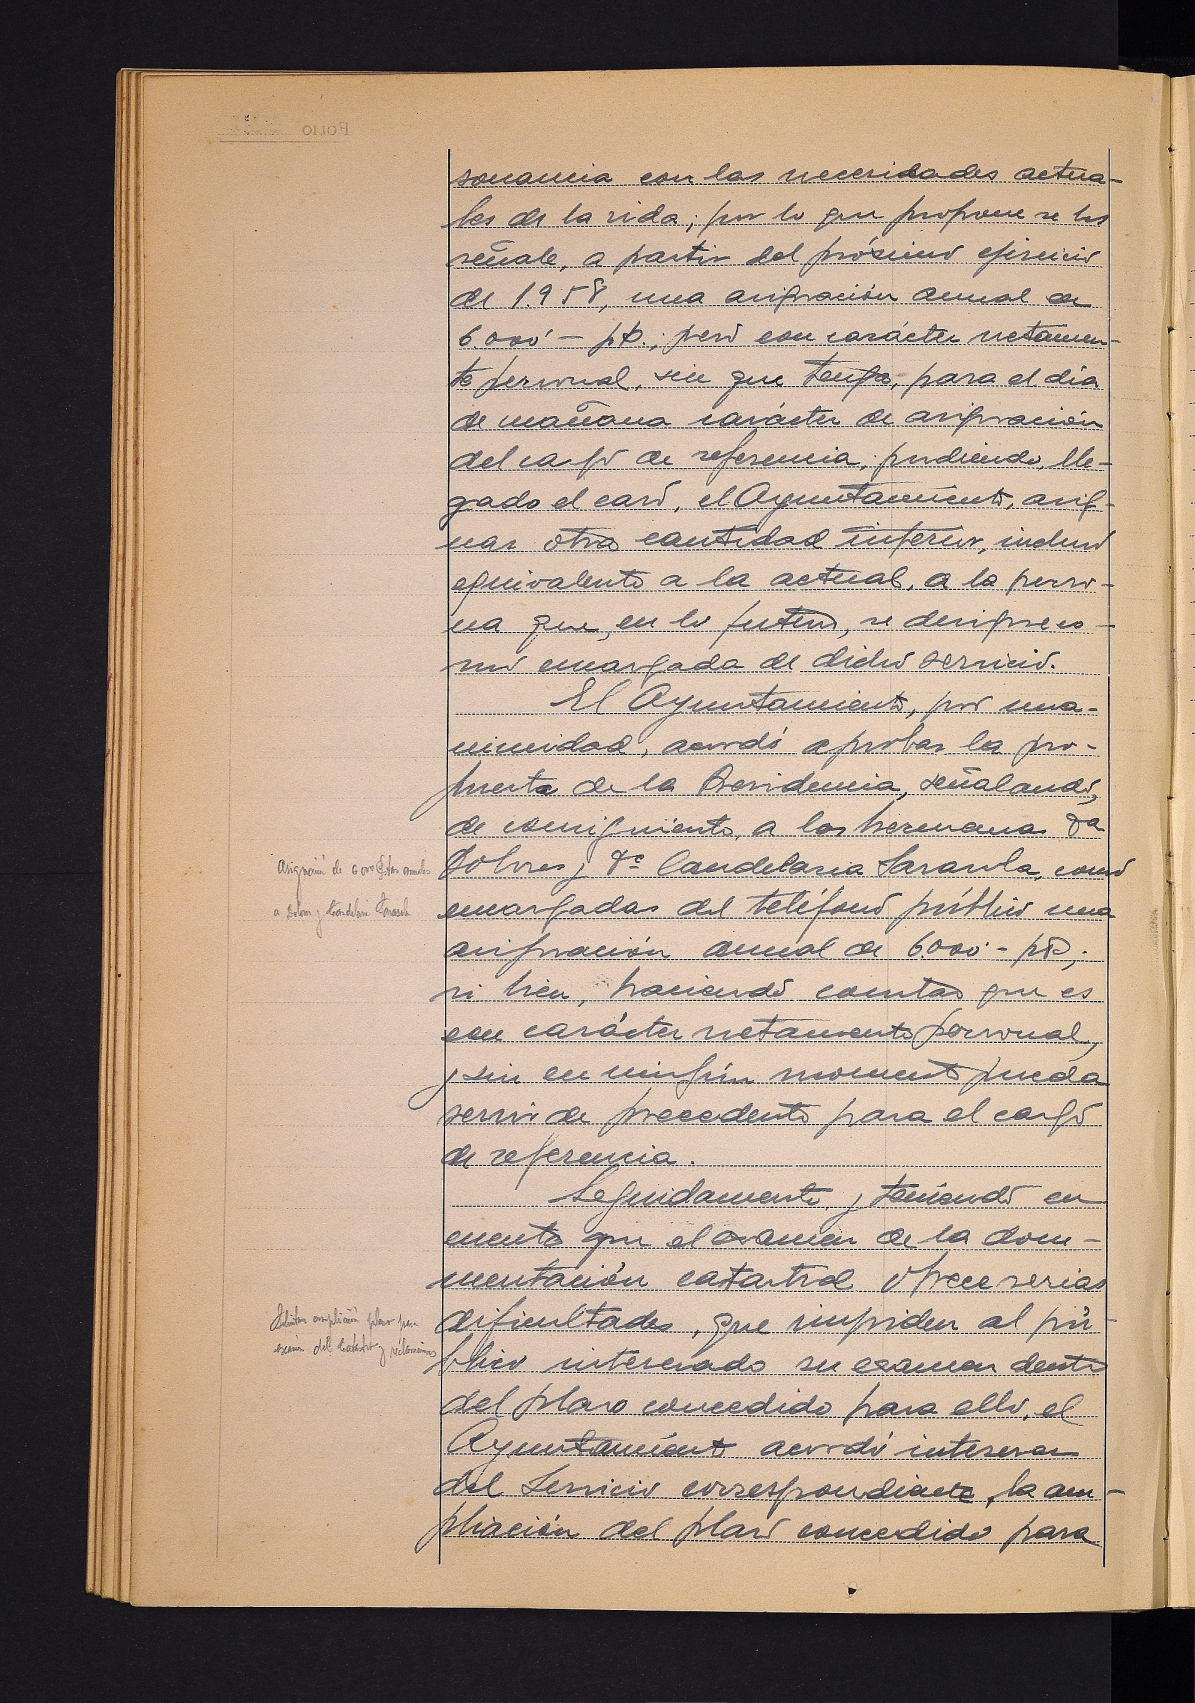 sonancia con las necesidades actua-
les de la vida; por lo que propone se les
señale, a partir del próximo ejercicio
de 1.958, una asignación anual de
6.000'- pts.; pero con carácter netamen-
te personal, sin que tenga, para el día
de mañana carácter de asignación
del cargo de referencia; pudiendo, lle-
gado el caso, el Ayuntamiento, asig-
nar otra cantidad inferior, incluso
equivalente a la actual, a la perso-
na que, en lo futuro, se designe co-
mo encargada de dicho servicio.
El Ayuntamiento, por una-
nimidad, acordó aprobar la pro-
puesta de la Presidencia, señalando,
de consiguiente, a las hermanas Dª
Asignación de 6.000 Ptas anuales
a Dolores y Candelaria
Dolores y Dª Candelaria Sarasola, como
encargadas del teléfono público una
asignación anual de 6.000'- pts;
si bien, haciendo constar que es
con carácter netamente personal,
y sin en ningún momento pueda
servir de precedente para el cargo
de referencia.
Seguidamente y teniendo en
cuenta que el examen de la docu-
mentación catastral ofrece serias
Solicitar ampliación plazo para
examen del Catastro y reclamaciones
dificultades, que impiden al pú-
blico interesado su examen dentro
del plazo concedido para ello, el
Ayuntamiento acordó interesar
del Servicio correspondiente, la am-
pliación del plazo concedido para
FOLIO